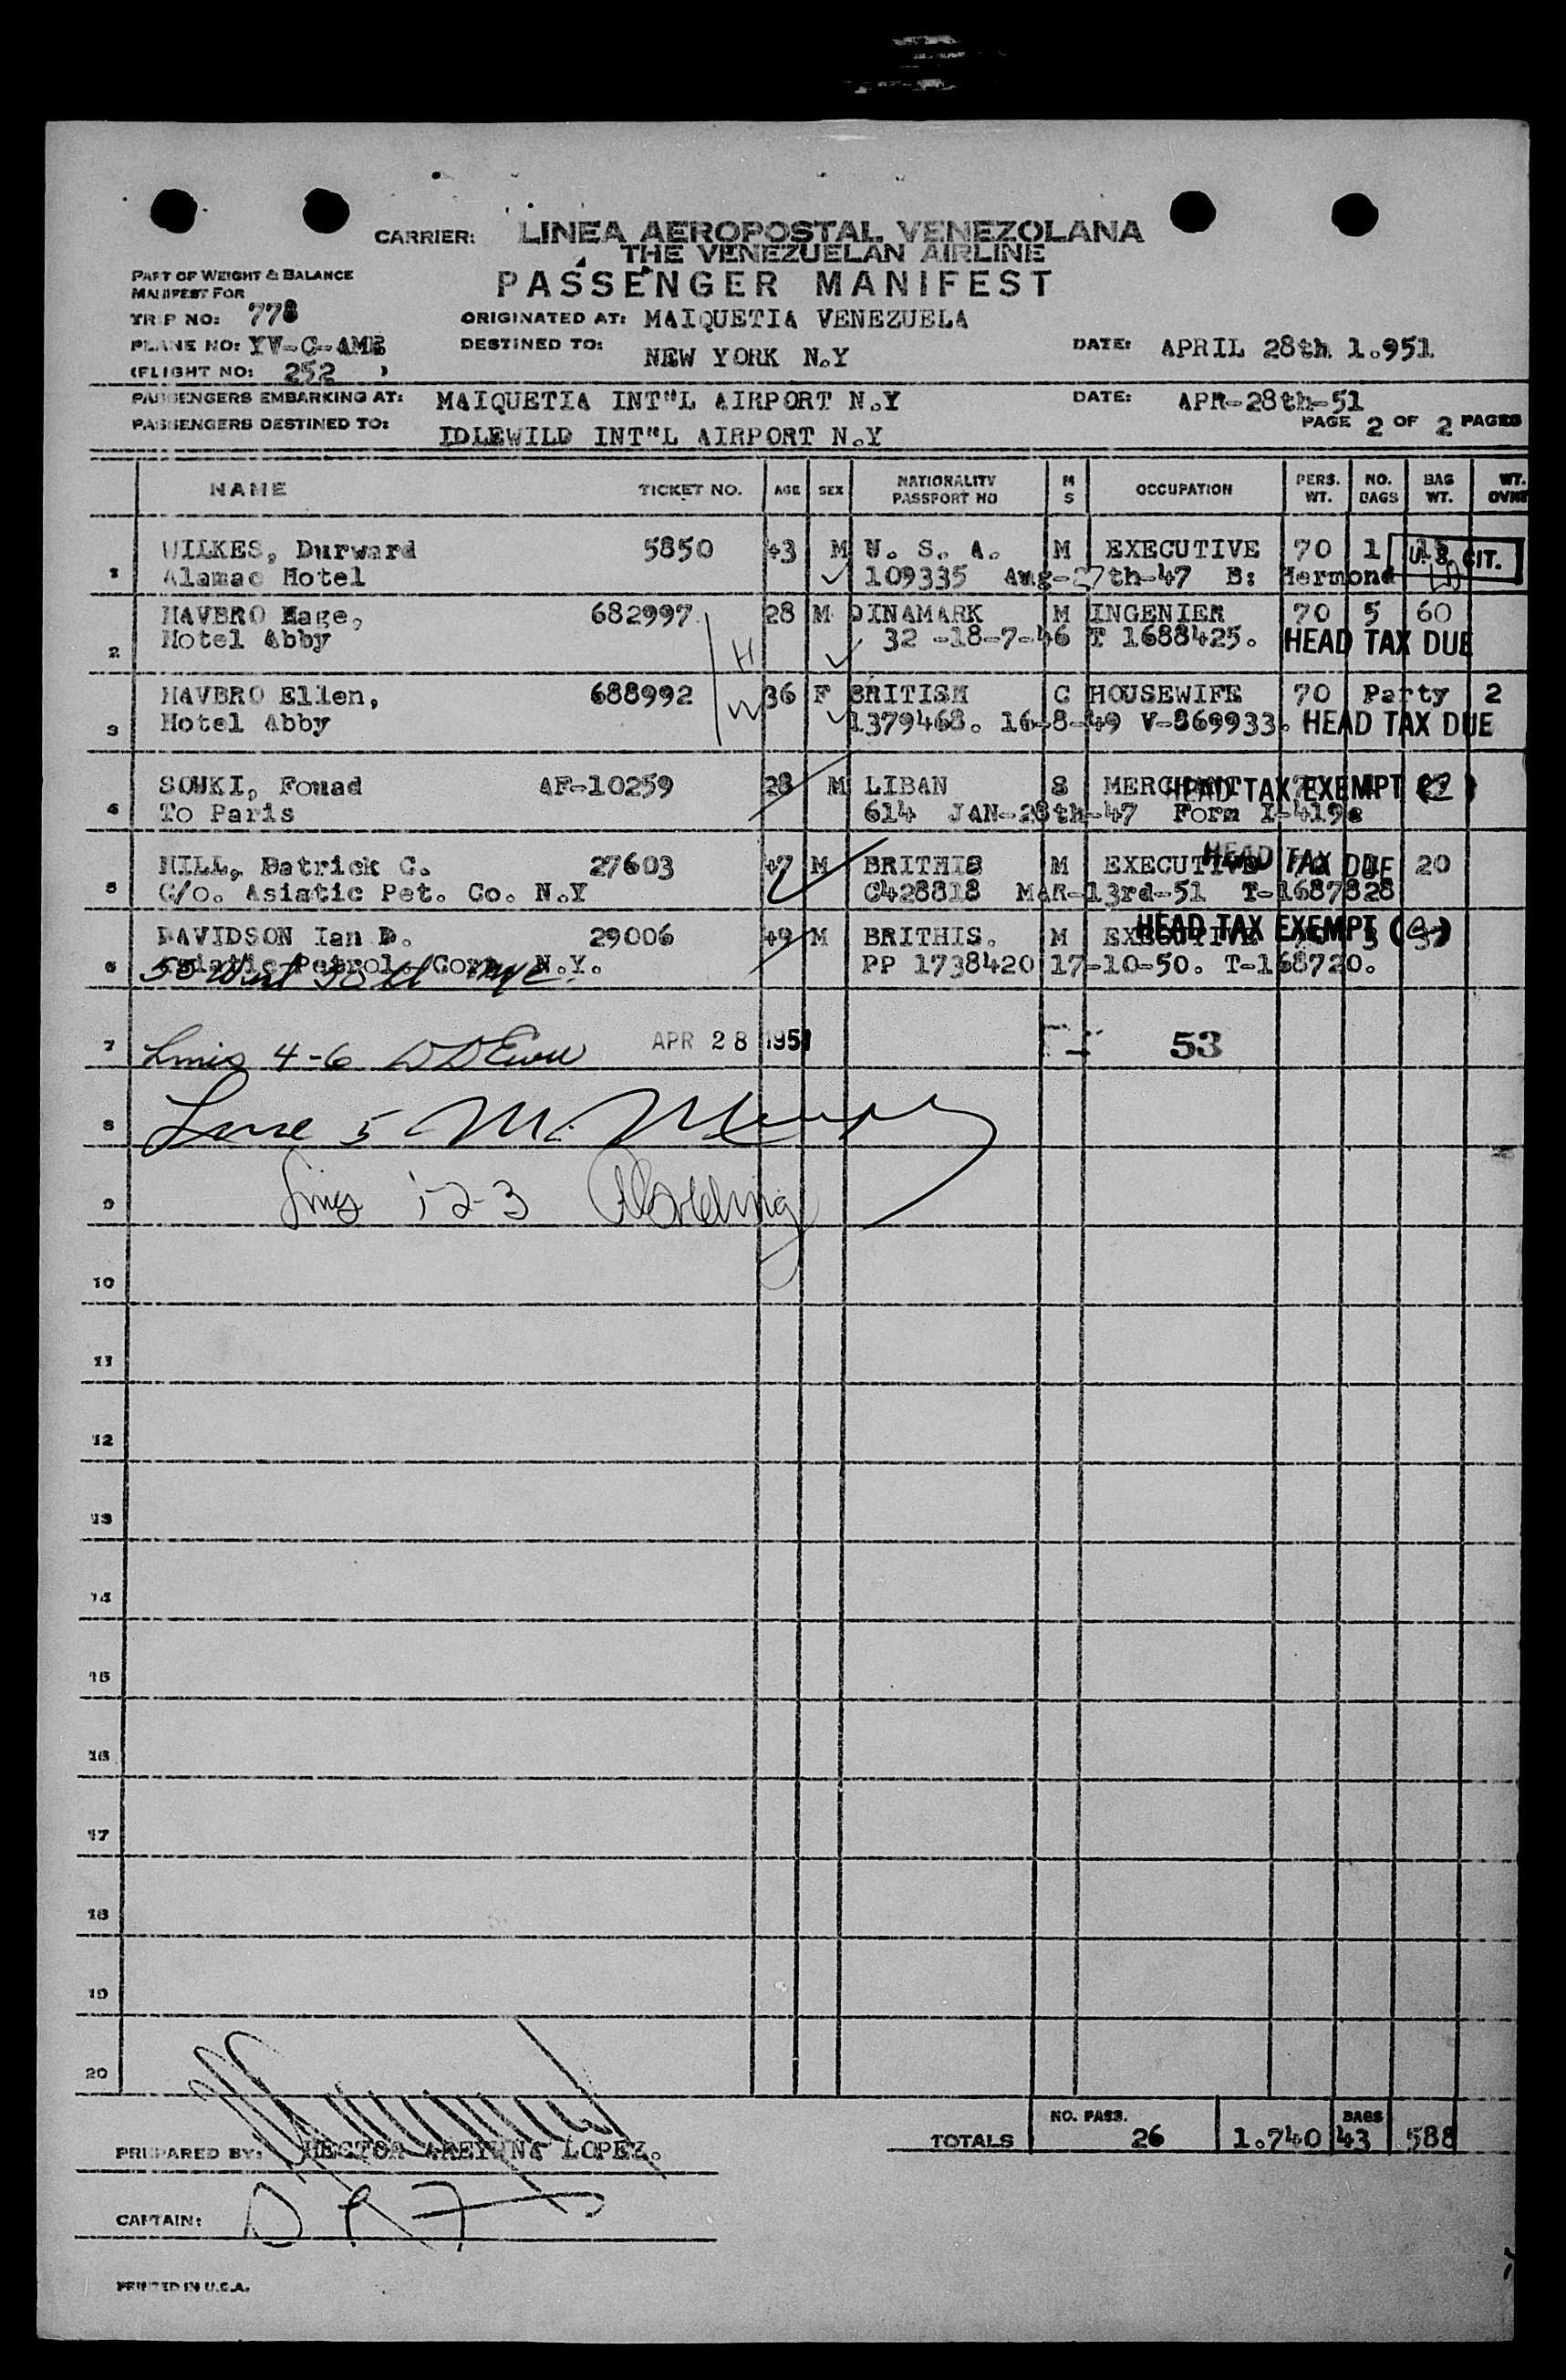 CARRIER: LINEA AEROPOSTAL VENEZOLANA
THE VENEZUELAN AIRLINE
PASSENGER MANIFEST
PART OF WEIGHT & BALANCE
MANIFEST FOR
TRIP NO: 778
ORIGINATED AT: MAIQUETIA VENEZUELA
PLANE NO: YV-C-AME DESTINED TO: NEW YORK N.Y DATE: APRIL 28th 1.951
(FLIGHT NO: 252 )
PASSENGERS EMBARKING AT: MAIQUETIA INT"L AIRPORT N.Y DATE: APR-28th-51
PASSENGERS DESTINED TO: IDLEWILD INT"L AIRPORT N.Y PAGE 2 OF 2 PAGES
NAME TICKET NO. AGE SEX NATIONALITY PASSPORT NO M S OCCUPATION PERS. WT. NO. BAGS BAG WT. WT.
WILKES, Durward 5850 43 M U. S. A. M EXECUTIVE 70 1 15 U. S. CIT.
1 Alamac Hotel 109335 Aug-27th-47 B: Hermond
HAVBRO Hage, 682997 28 M DINAMARK M INGENIER 70 5 60
2 Hotel Abby H 32 -18-7-46 T 1688425. HEAD TAX DUE
HAVBRO Ellen, 688992 36 F BRITISH C HOUSEWIFE 70 Party 2
3 Hotel Abby W 1379468. 16-8-49 V-869933. HEAD TAX DUE
SOUKI, Fouad AF-10259 28 M LIBAN S MERCHANT HEAD TAX EXEMPT
4 To Paris 614 JAN-28th-47 Form I-419e
HILL, Patrick C. 27603 47 M BRITHIS M EXECUTIVE HEAD TAX DUE 20
5 C/o. Asiatic Pet. Co. N.Y C428818 MAR-13rd-51 T-1687828
DAVIDSON Ian D. 29006 49 M BRITHIS. M EXECUTIVE HEAD TAX EXEMPT
6 Asiatic Petrol. Corp. N.Y. PP 1738420 17-10-50. T-168720.
7 Lines 4-6 APR 28 1951 53
8 Line 5 M. Murphy
9 Lines 1-2-3
10
11
12
13
14
15
16
17
18
19
20
NO. PASS. BAGS
PREPARED BY: HECTOR LOPEZ. TOTALS 26 1.740 43 588
CAPTAIN:
PRINTED IN U.S.A.